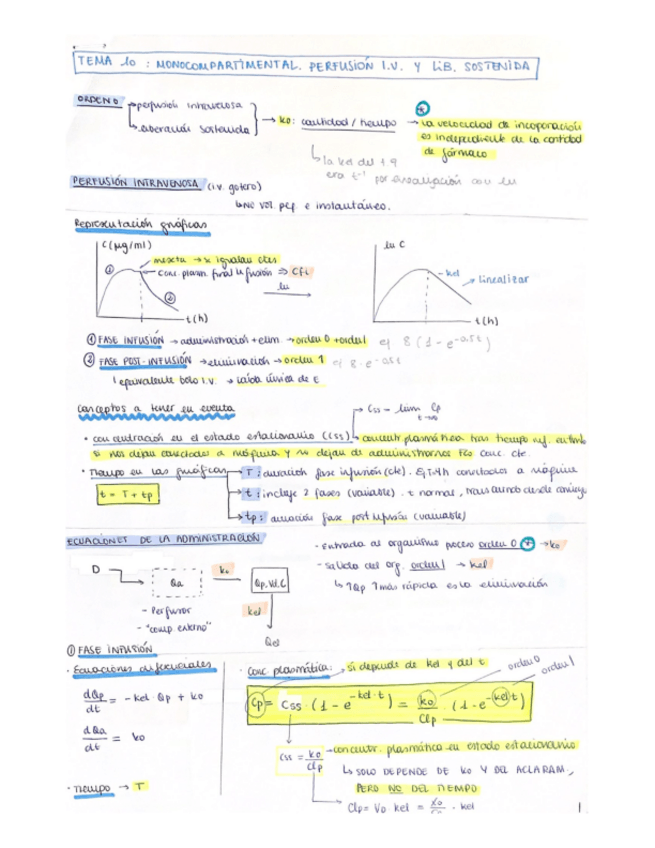 TEMA 10 : MONOCOMPARTIMENTAL. PERFUSIÓN I.V. Y LIB. SOSTENIDA
ORDEN 0 → perfusión intravenosa
→ liberación sostenida
→ ko: cantidad / tiempo → la velocidad de incorporación
es independiente de la cantidad
de fármaco
la kel del t.9
era t⁻¹ por
PERFUSIÓN INTRAVENOSA (i.v. gotero)
↳ NO vol. peq. e instantáneo.
Representación gráficas
C (µg/ml)
meseta → se igualan ctes
Conc. plasm. final infusión ⇒ Cfi
①
②
ln
t (h)
ln C
- kel
linealizar
t (h)
① FASE INFUSIÓN → administración + elim. → orden 0 + orden 1 ej 8 (1 - e^-0.5t)
② FASE POST-INFUSIÓN → eliminación → orden 1 ej 8 · e^-0.5t
equivalente bolo I.V. → caída única de E
Conceptos a tener en cuenta
Css = lim Cp
t→∞
· concentración en el estado estacionario (Css) → concentr. plasmática tras tiempo inf.
si nos dejan conectados a máquina y no dejan de administrarnos conc. cte.
· Tiempo en las gráficas → T : duración fase infusión (cte). conectados a máquina
t = T + tp
→ t : incluye 2 fases (variable). t normal, transcurrido desde
→ tp : duración fase post infusión (variable)
ECUACIONES DE LA ADMINISTRACIÓN
D
Qa
ko
Qp, Vd, C
- Perfusor
- "comp. externo"
kel
Qel
- Entrada al organismo proceso orden 0 → ko
- Salida del org. orden 1 → kel
↳ ↑Qp ↑más rápida es la eliminación
① FASE INFUSIÓN
· Ecuaciones diferenciales
dQp/dt = - kel Qp + ko
dQa/dt = ko
· Tiempo → T
· Conc. plasmática: si depende de kel y del t
orden 0
orden 1
Cp = Css · (1 - e^-kel·t) = ko/Clp · (1 - e^-kel·t)
Css = ko/Clp
→ concentr. plasmática en estado estacionario
↳ SOLO DEPENDE DE ko Y DEL ACLARAM,
PERO NO DEL TIEMPO
Clp = Vd · kel = · kel
1